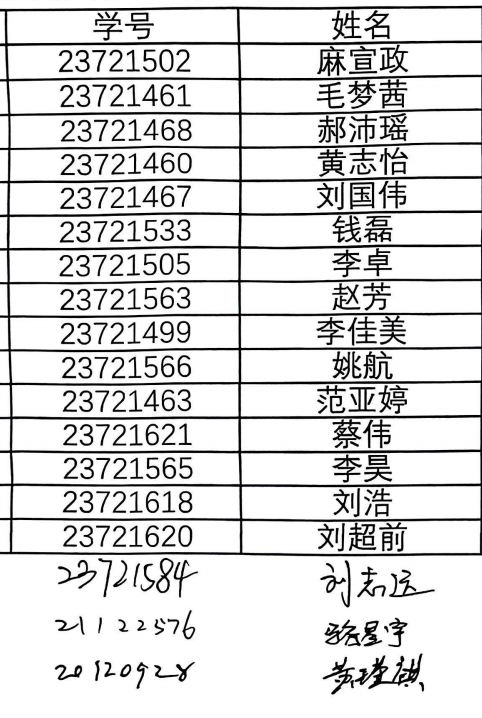 学号 姓名
23721502 麻宣政
23721461 毛梦茜
23721468 郝沛瑶
23721460 黄志怡
23721467 刘国伟
23721533 钱磊
23721505 李卓
23721563 赵芳
23721499 李佳美
23721566 姚航
23721463 范亚婷
23721621 蔡伟
23721565 李昊
23721618 刘浩
23721620 刘超前
23721584 刘志远
21122576 骆星宇
20120928 黄瑾祺